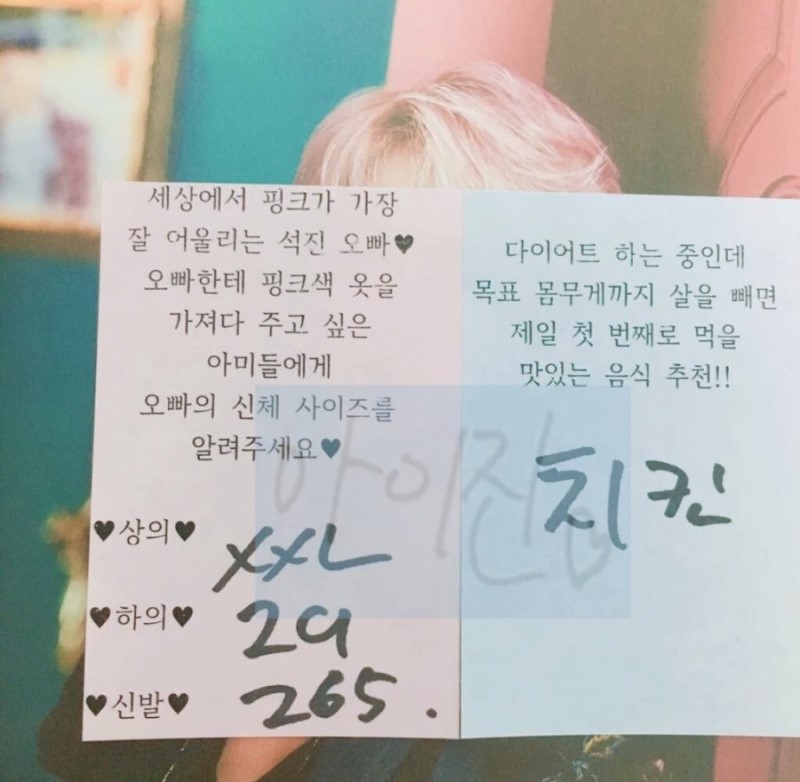 세상에서 핑크가 가장
잘 어울리는 석진 오빠♥
오빠한테 핑크색 옷을
가져다 주고 싶은
아미들에게
오빠의 신체 사이즈를
알려주세요♥
♥상의♥ XXL
♥하의♥ 29
♥신발♥ 265.
다이어트 하는 중인데
목표 몸무게까지 살을 빼면
제일 첫 번째로 먹을
맛있는 음식 추천!!
치킨
아이진